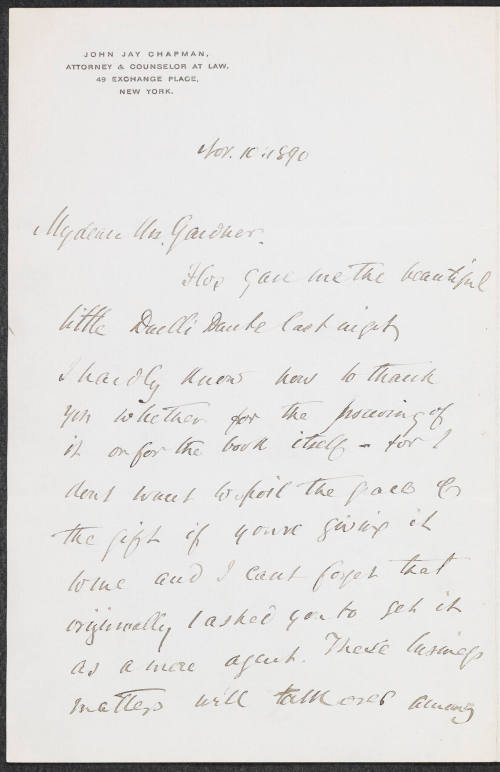 JOHN JAY CHAPMAN,
ATTORNEY & COUNSELOR AT LAW,
49 EXCHANGE PLACE,
NEW YORK.
Nov. 10. 1890
My dear Mrs. Gardner.
gave me the beautiful
little Duelli Dante last night
I hardly know how to thank
you whether for the procuring of
it or for the book itself - for I
dont want to spoil the grace of
the gift if you're giving it
to me and I cant forget that
originally I asked you to get it
as a mere agent. These business
matters we'll talk over among